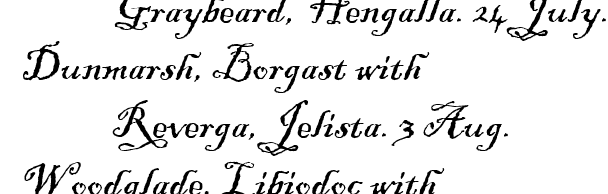 Graybeard, Hengalla. 24 July.
Dunmarsh, Borgast with
Reverga, Jelista. 3 Aug.
Woodglade, Libiodoc with